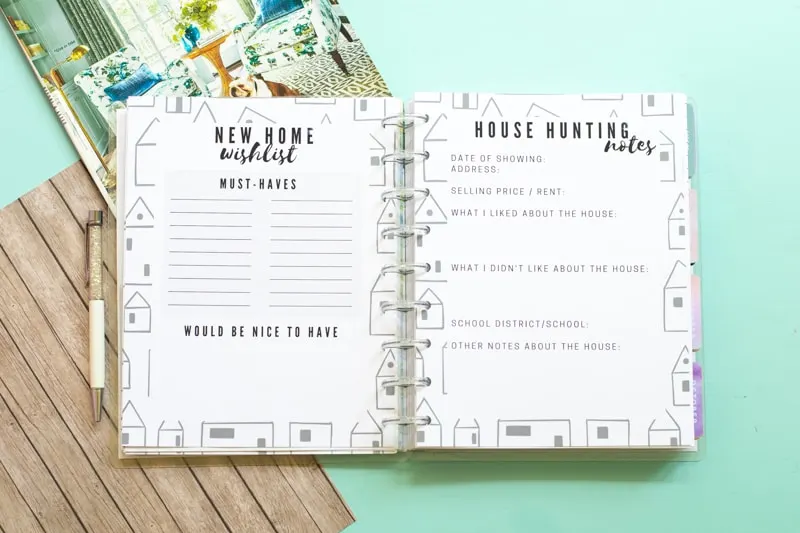 NEW HOME
wishlist
MUST-HAVES
WOULD BE NICE TO HAVE
HOUSE HUNTING
notes
DATE OF SHOWING:
ADDRESS:
SELLING PRICE / RENT:
WHAT I LIKED ABOUT THE HOUSE:
WHAT I DIDN'T LIKE ABOUT THE HOUSE:
SCHOOL DISTRICT/SCHOOL:
OTHER NOTES ABOUT THE HOUSE: